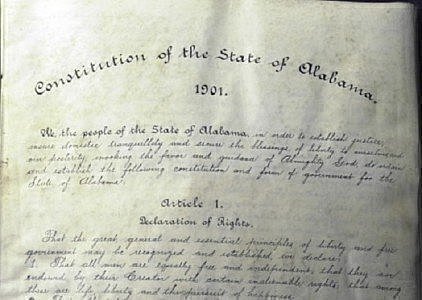 Constitution of the State of Alabama.
1901.
We, the people of the State of Alabama, in order to establish justice,
insure domestic tranquillity and secure the blessings of liberty to ourselves and
our posterity, invoking the favor and guidance of Almighty God, do ordain
and establish the following constitution and form of government for the
State of Alabama:
Article 1.
Declaration of Rights.
That the great, general and essential principles of liberty and free
government may be recognized and established, we declare:
1. That all men are equally free and independent; that they are
endowed by their Creator with certain inalienable rights; that among
these are life, liberty and the pursuit of happiness.